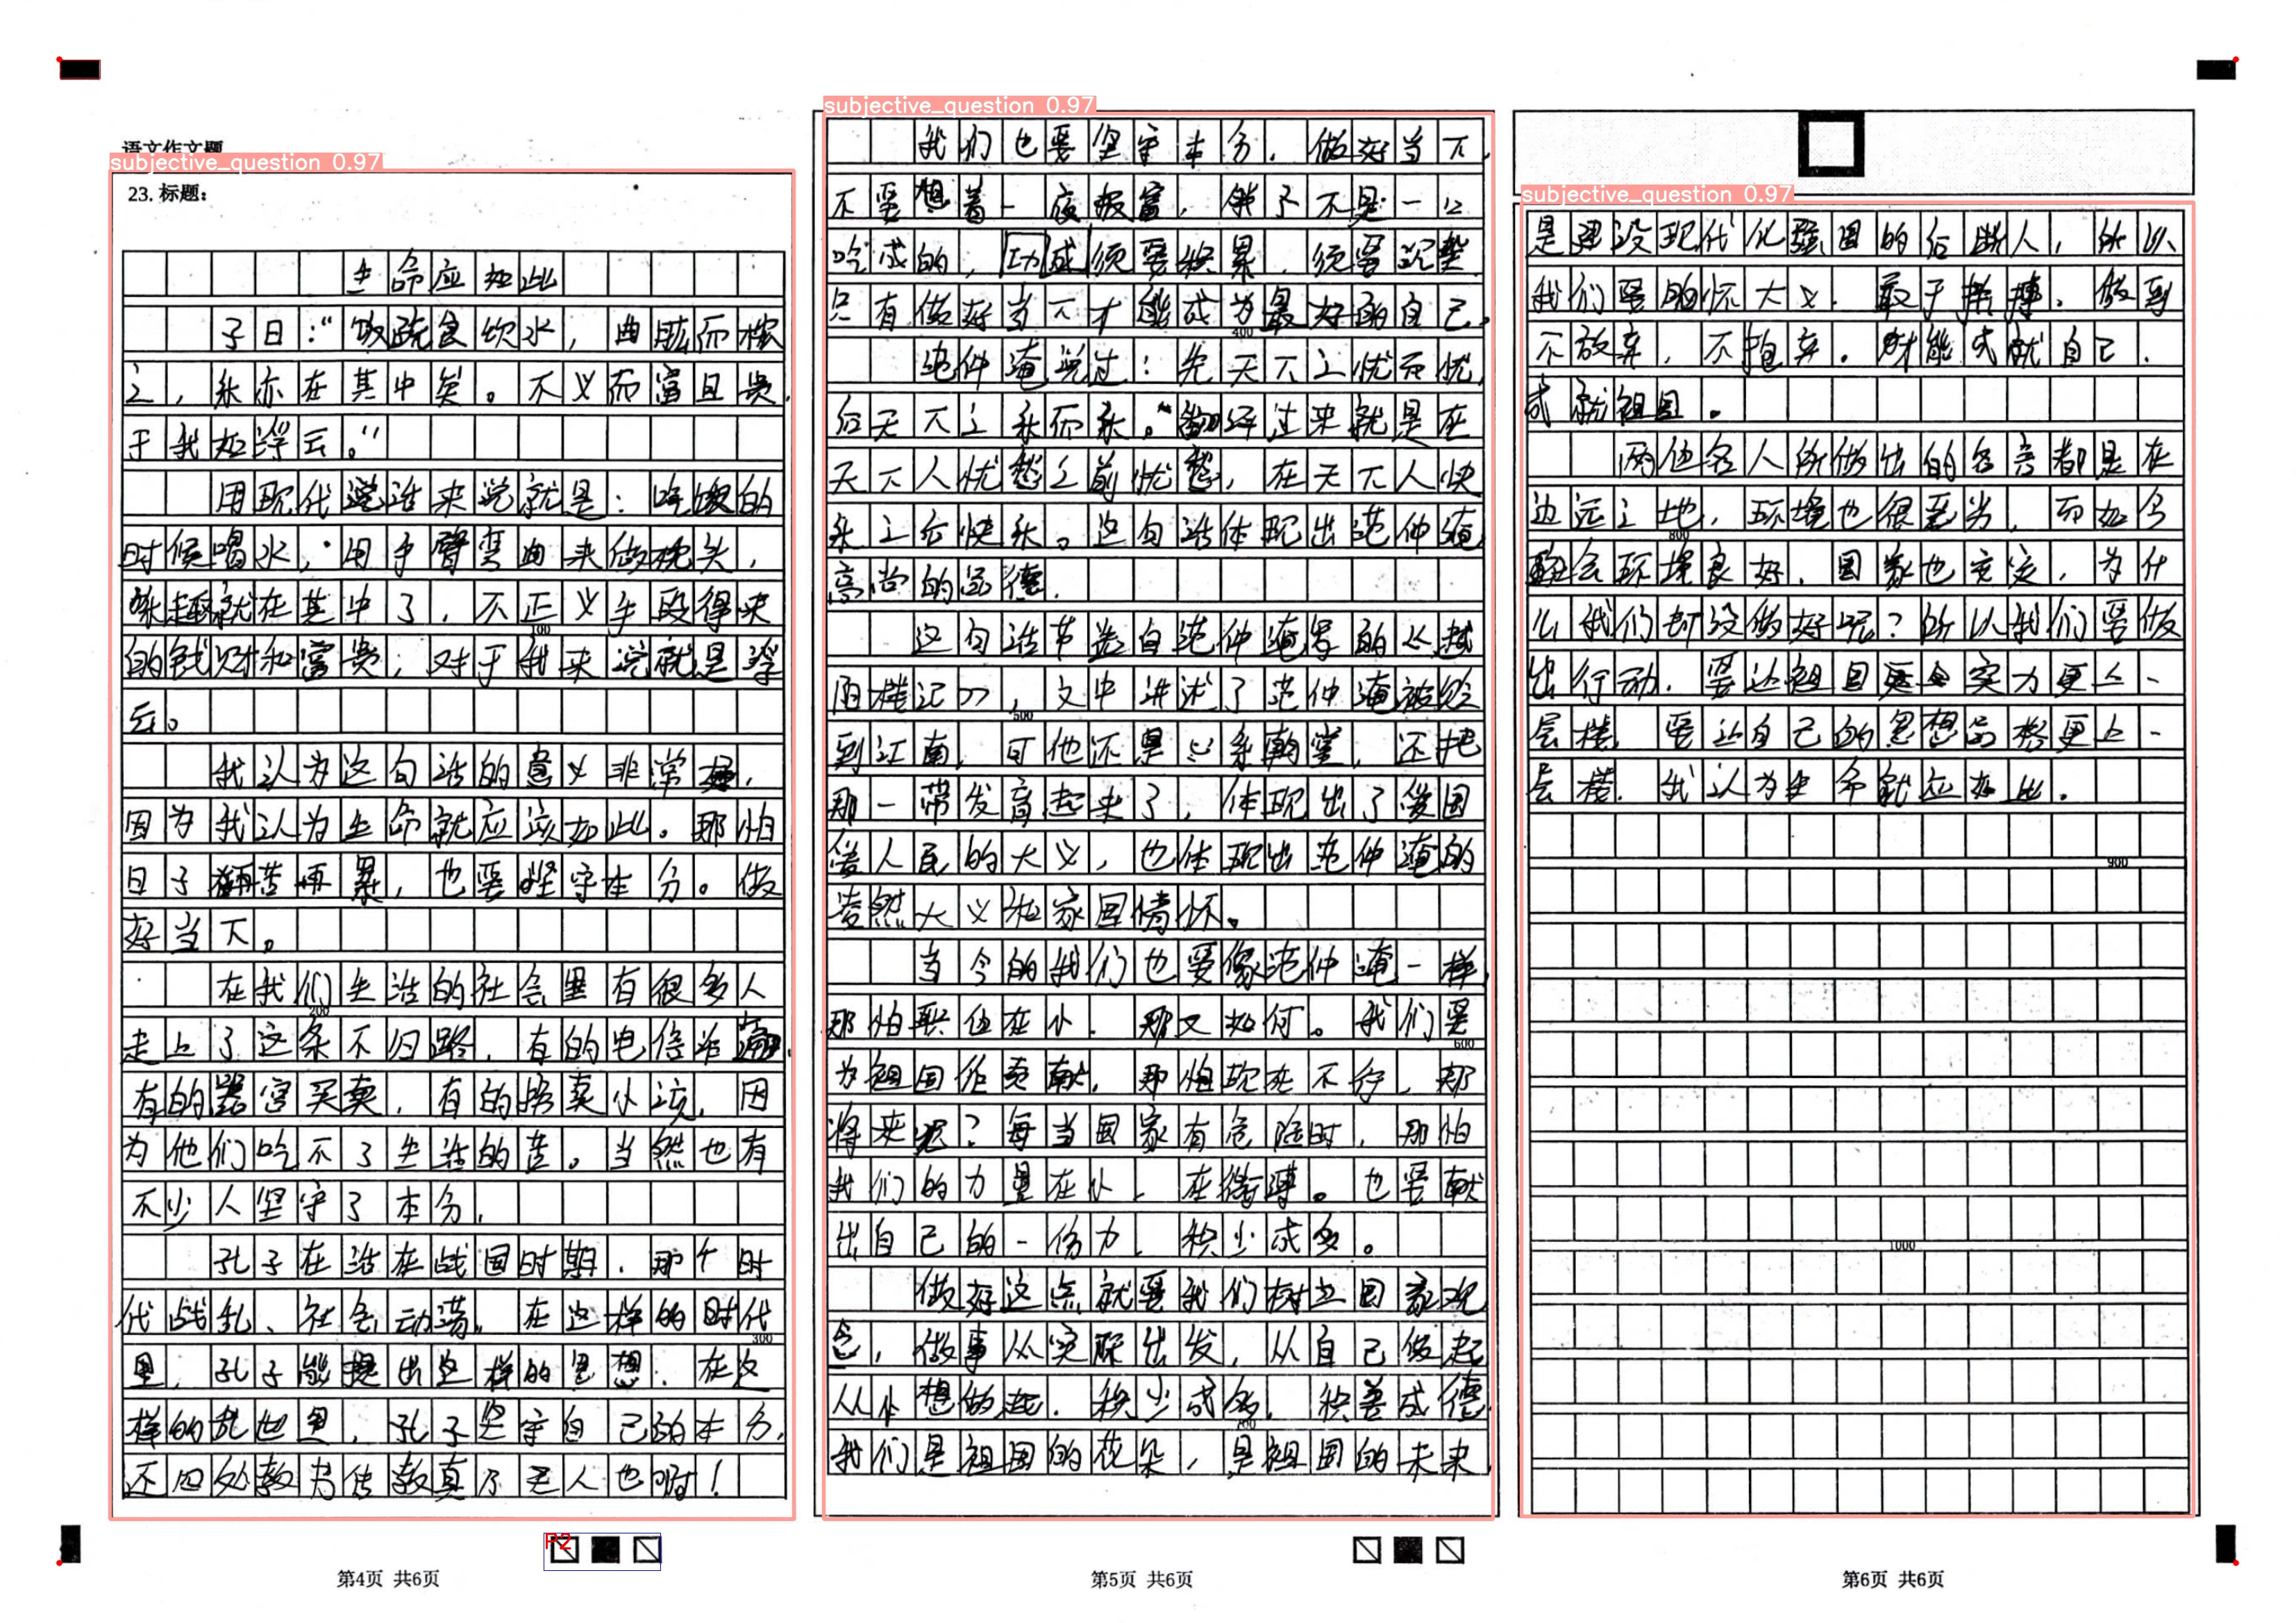 语文作文题
subjective_question 0.97
23. 标题：
生命应如此
子曰：“饭疏食饮水，曲肱而枕
之，乐亦在其中矣。不义而富且贵，
于我如浮云。”
用现代说话来说就是：吃饭的
时候喝水，用手臂弯曲来做枕头，
乐趣就在其中了，不正义手段得来
100
的钱财和富贵；对于我来说就是浮
云。
我认为这句话的意义非常
因为我认为生命就应该如此。那怕
日子再苦再累，也要坚守本分。做
好当下。
在我们生活的社会里有很多人
200
走上了这条不归路，有的电信诈骗，
有的器官买卖，有的拐卖小孩，因
为他们吃不了生活的苦。当然也有
不少人坚守了本分，
孔子在活在战国时期，那个时
代战乱、社会动荡。在这样的时代
300
里，孔子能提出这样的思想，在这
样的乱世里，孔子坚守自己的本分，
还四处教书传教真乃圣人也啊！
P2
第4页 共6页
subjective_question 0.97
我们也要坚守本分，做好当下，
不要想着一夜报富，饼子不是一口
吃成的，功成须要积累，须要沉淀
只有做好当下才能成为最好的自己。
400
范仲淹说过：先天下之忧而忧，
后天下之乐而乐。”翻译过来就是在
天下人忧愁之前忧愁，在天下人快
乐之后快乐。这句话体现出范仲淹
高尚的品德，
这句话节选自范仲淹写的《越
阳楼记》，文中讲述了范仲淹被贬
500
到江南，可他还是心系朝堂，还把
那一带发育起来了，体现出了爱国
爱人民的大义，也体现出范仲淹的
凌然大义和家国情怀。
当今的我们也要像范仲淹一样，
那怕职位在小，那又如何。我们要
600
为祖国作贡献，那怕现在不行，那
将来呢？每当国家有危险时，那怕
我们的力量在小，在微薄。也要献
出自己的一份力，积少成多。
做好这点就要我们树立国家观
念，做事从实际出发，从自己做起
从小想做起，积少成多，积善成德，
700
我们是祖国的花朵，是祖国的未来，
第5页 共6页
subjective_question 0.97
是建设现代化强国的后断人，所以
我们要胸怀大义，敢于拼搏，做到
不放弃，不抱弃。才能成就自己，
成就祖国。
两位名人所做出的名言都是在
边远之地，环境也很恶劣，而如今
800
社会环境良好，国家也安定，为什
么我们却没做好呢？所以我们要做
出行动，要让祖国更实力更上一
层楼，要让自己的思想品格更上一
层楼，我认为生命就应如此。
900
1000
第6页 共6页